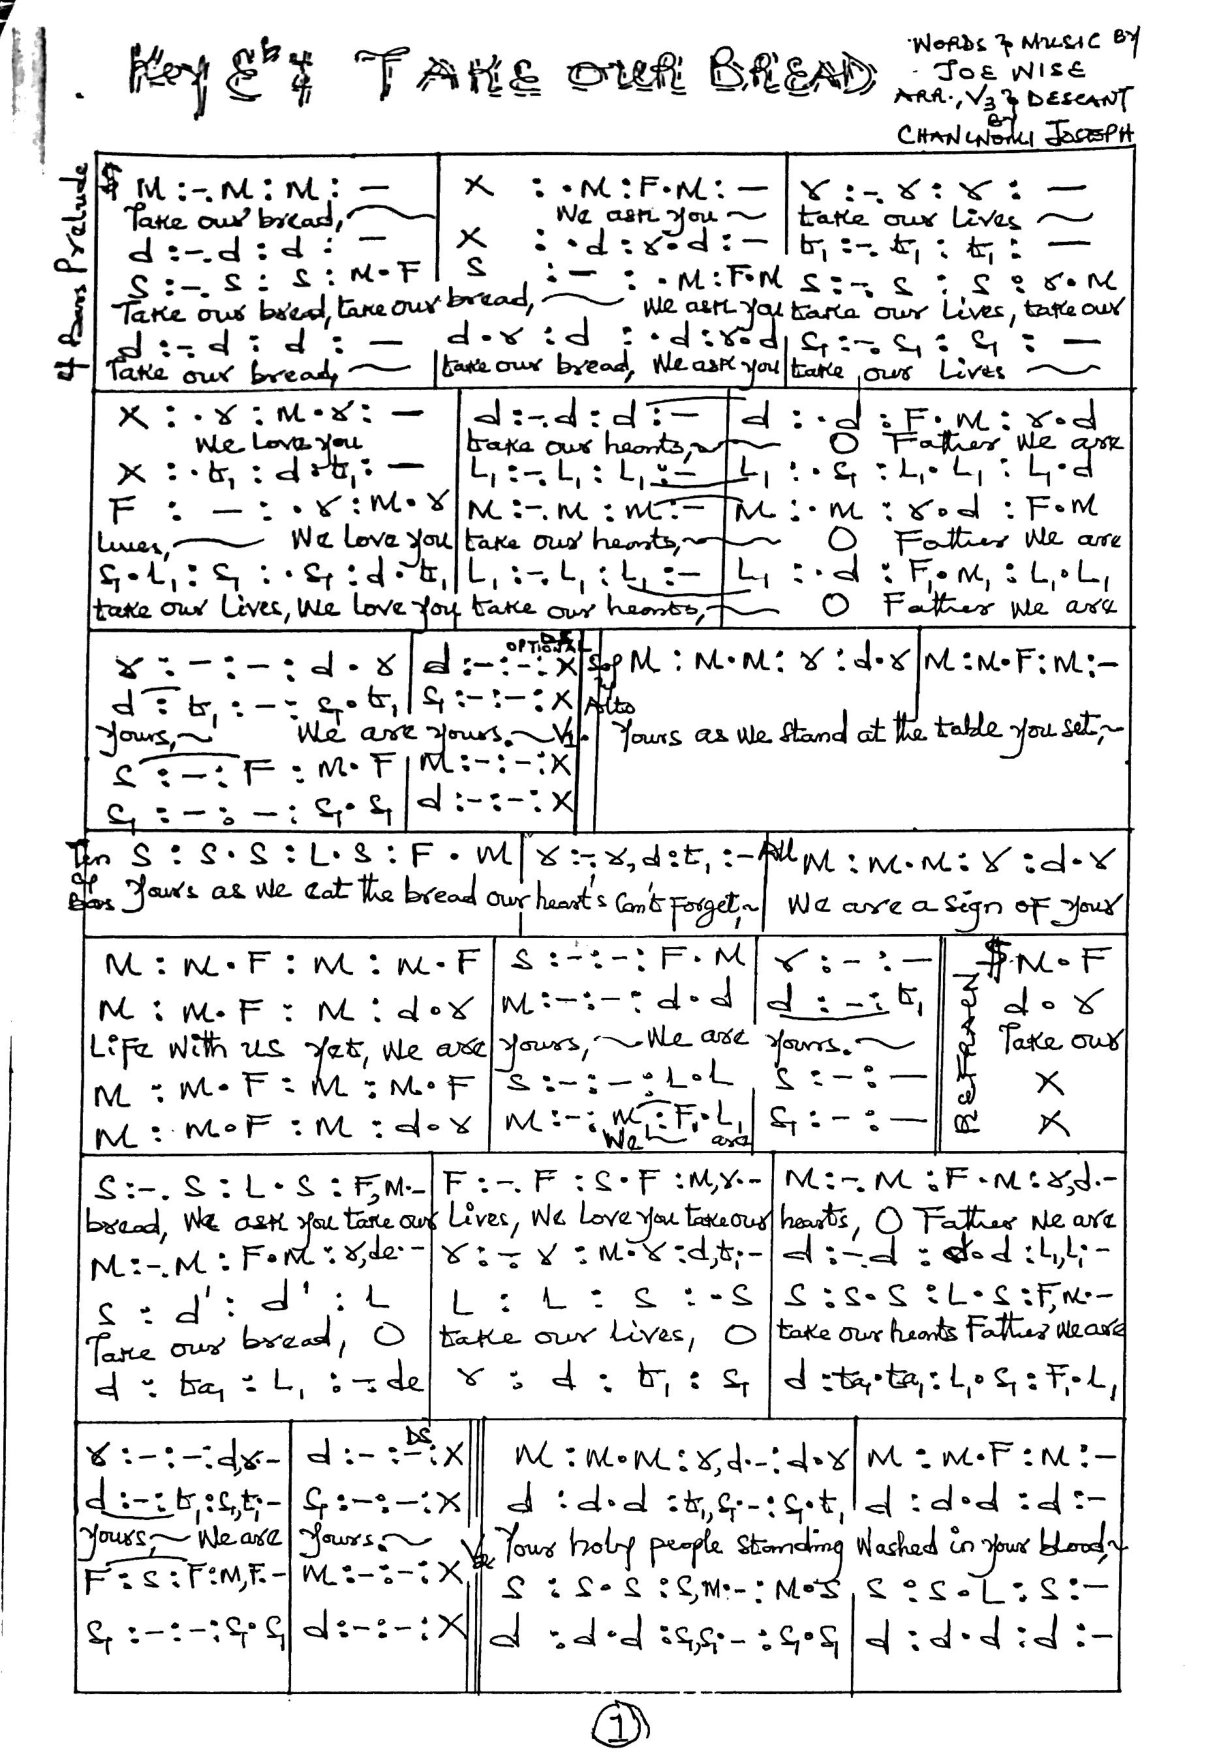 Key E♭ 4 TAKE OUR BREAD
WORDS & MUSIC BY
JOE WISE
ARR., V3 & DESCANT
BY
CHAMNOMI JOSEPH
4 Bars Prelude
M :-. M : M : — | X : . M : F . M : — | r :-. r : r : —
Take our bread, We ask you take our lives
d :-. d : d : — | X : . d : r . d : — | t₁ :-. t₁ : t₁ : —
S :-. S : S : M . F | S : — : . M : F . M | S :-. S : S : r . M
Take our bread, take our bread, We ask you take our lives, take our
d :-. d : d : — | d . r : d : . d : r . d | S₁ :-. S₁ : S₁ : —
Take our bread, take our bread, We ask you take our lives
X : . r : M . r : — | d :-. d : d : — | d : . d : F . M : r . d
We love you take our hearts, O Father we are
X : . t₁ : d . t₁ : — | L₁ :-. L₁ : L₁ : — | L₁ : . S₁ : L₁ . L₁ : L₁ . d
F : — : . r : M . r | M :-. M : M : — | M : . M : r . d : F . M
lives, We love you take our hearts, O Father we are
S₁ . L₁ : S₁ : . S₁ : d . t₁ | L₁ :-. L₁ : L₁ : — | L₁ : . d : F₁ . M₁ : L₁ . L₁
take our lives, We love you take our hearts, O Father we are
OPTIONAL DS
r : — : — : d . r | d : — : — : X | Sop & Alto M : M . M : r : d . r | M : M . F : M : —
d : t₁ : — : S₁ . t₁ | S₁ : — : — : X
Yours, We are yours. V1. Yours as we stand at the table you set,
S : — : F : M . F | M : — : — : X
S₁ : — : — : S₁ . S₁ | d : — : — : X
Ten & Bass S : S . S : L . S : F . M | r :-. r, d : t₁ : — | All M : M . M : r : d . r
Yours as we eat the bread our heart's can't forget, We are a sign of your
M : M . F : M : M . F | S : — : — : F . M | r : — : — | REFRAIN M . F
M : M . F : M : d . r | M : — : — : d . d | d : — : t₁ | d . r
Life with us yet, we are yours, We are yours. Take our
M : M . F : M : M . F | S : — : — : L . L | S : — : — | X
M : M . F : M : d . r | M : — : M₁ : F₁ . L₁ | S₁ : — : — | X
We are
S :-. S : L . S : F, M . - | F :-. F : S . F : M, r . - | M :-. M : F . M : r, d . -
bread, We ask you take our lives, We love you take our hearts, O Father we are
M :-. M : F . M : r, de . - | r :-. r : M . r : d, t₁ . - | d :-. d : d . d : L₁, L₁ . -
S : d' : d' : L | L : L : S : . S | S : S . S : L . S : F, M . -
Take our bread, O take our lives, O take our hearts Father we are
d : ta₁ : L₁ : -. de | r : d : t₁ : S₁ | d : ta₁ . ta₁ : L₁ . S₁ : F₁ . L₁
DS
r : — : — : d, r . - | d : — : — : X | M : M . M : r, d . - : d . r | M : M . F : M : —
d : — : t₁ : S₁, t₁ . - | S₁ : — : — : X | d : d . d : t₁, S₁ . - : S₁ . t₁ | d : d . d : d : —
Yours, We are yours. V2 Your holy people standing washed in your blood,
F : S : F : M, F . - | M : — : — : X | S : S . S : S, M . - : M . S | S : S . L : S : —
S₁ : — : — : S₁ . S₁ | d : — : — : X | d : d . d : S₁, S₁ . - : S₁ . S₁ | d : d . d : d : —
1